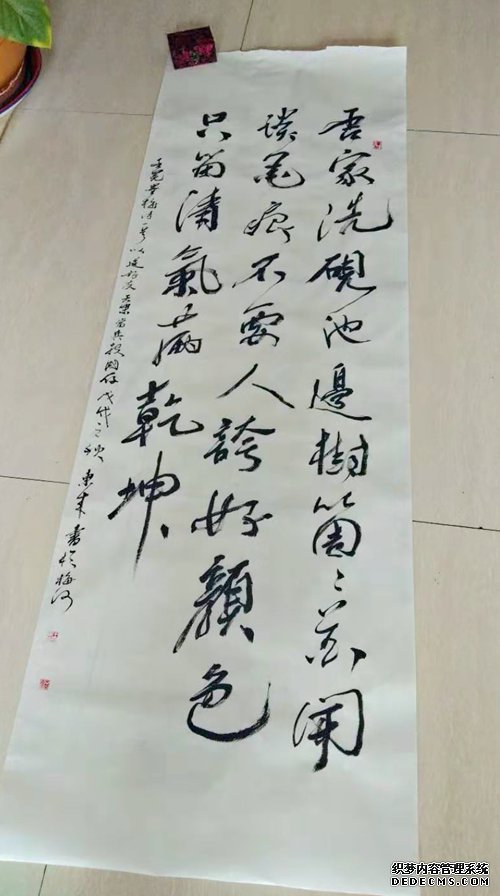 吾家洗硯池邊樹箇々花開
淡墨痕不要人誇好顏色
只留清氣滿乾坤
王冕墨梅詩一首以送好友 戊戌之秋 書於梅河
织梦内容管理系统
DEDECMS.COM